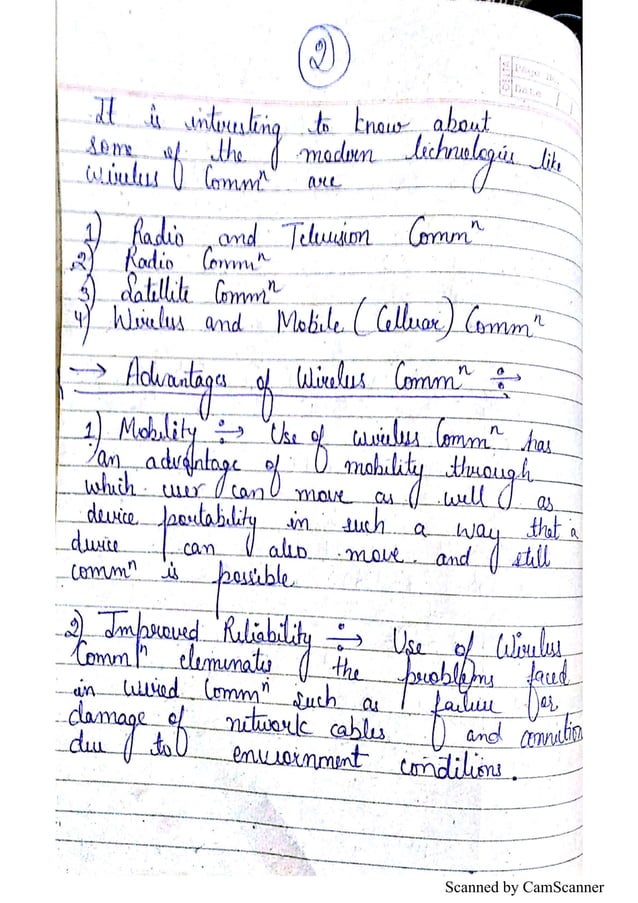 2
DELTA Page No.
Date
It is interesting to know about
some of the modern technologies like
wireless Commⁿ are
1) Radio and Television Commⁿ
2) Radio Commⁿ
3) Satellite Commⁿ
4) Wireless and Mobile (Celluar) Commⁿ
→ Advantages of Wireless Commⁿ ÷→
1) Mobility ÷→ Use of wireless Commⁿ has
an advantage of mobility through
which user can move as well as
device portability in such a way that a
device can also move and still
commⁿ is possible
2) Improved Reliability ÷→ Use of Wireless
Commⁿ eleminates the problems faced
in wired Commⁿ such as failure or
damage of network cables and connection
due to enviornment conditions.
Scanned by CamScanner